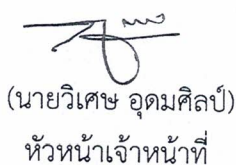 (นายวิเศษ อุดมศิลป์)
หัวหน้าเจ้าหน้าที่